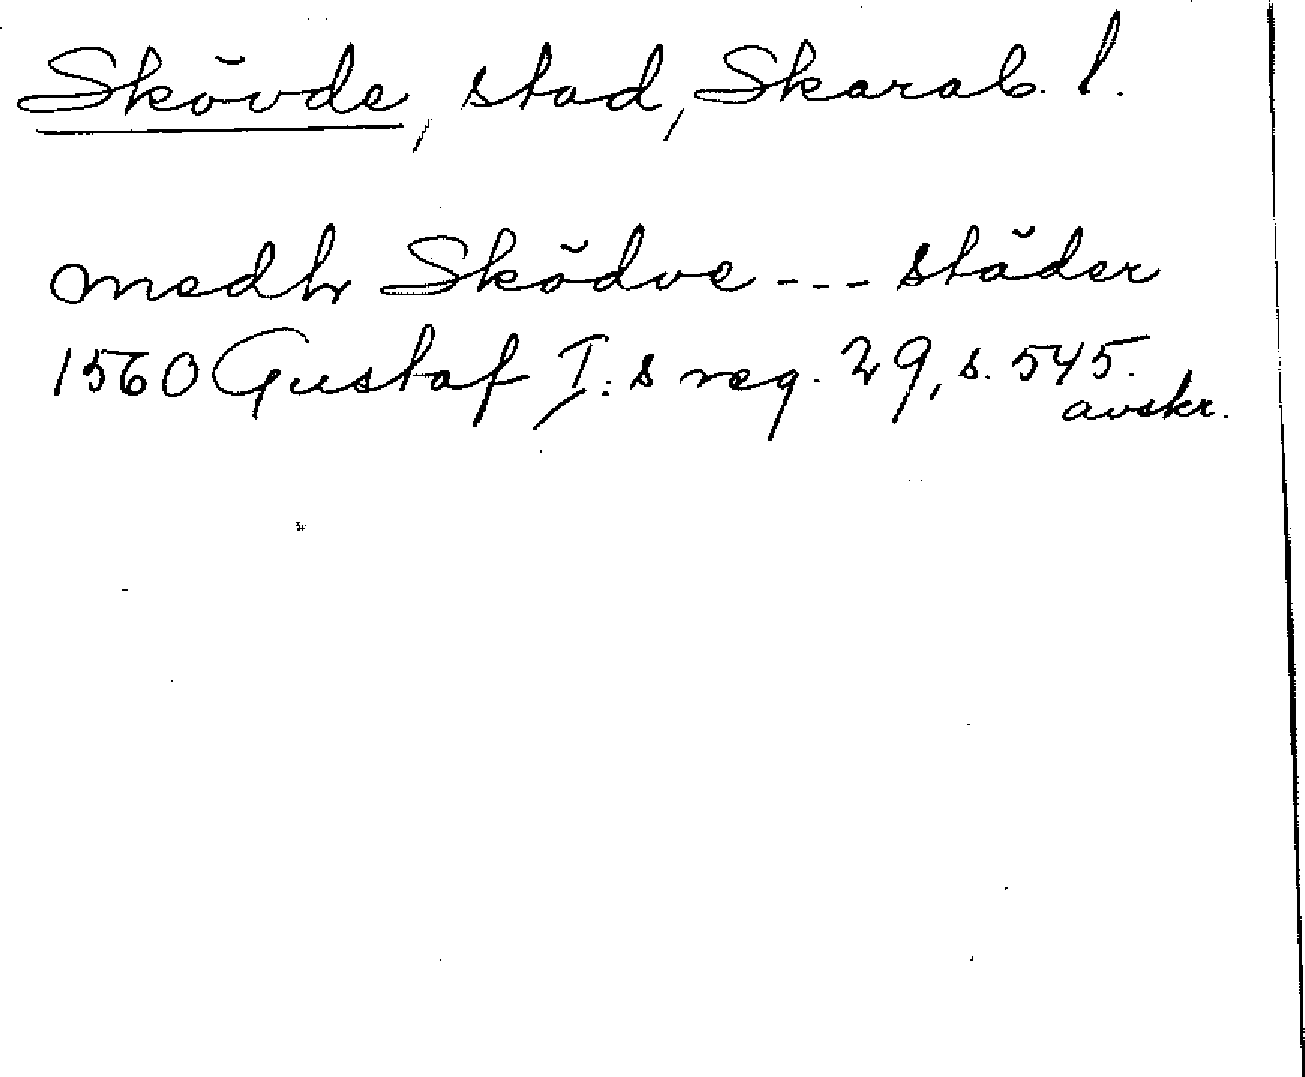 Skövde, stad, Skarab. l.
medh Sködve --- städer
1560 Gustaf I:s reg. 29, s. 545.
avskr.